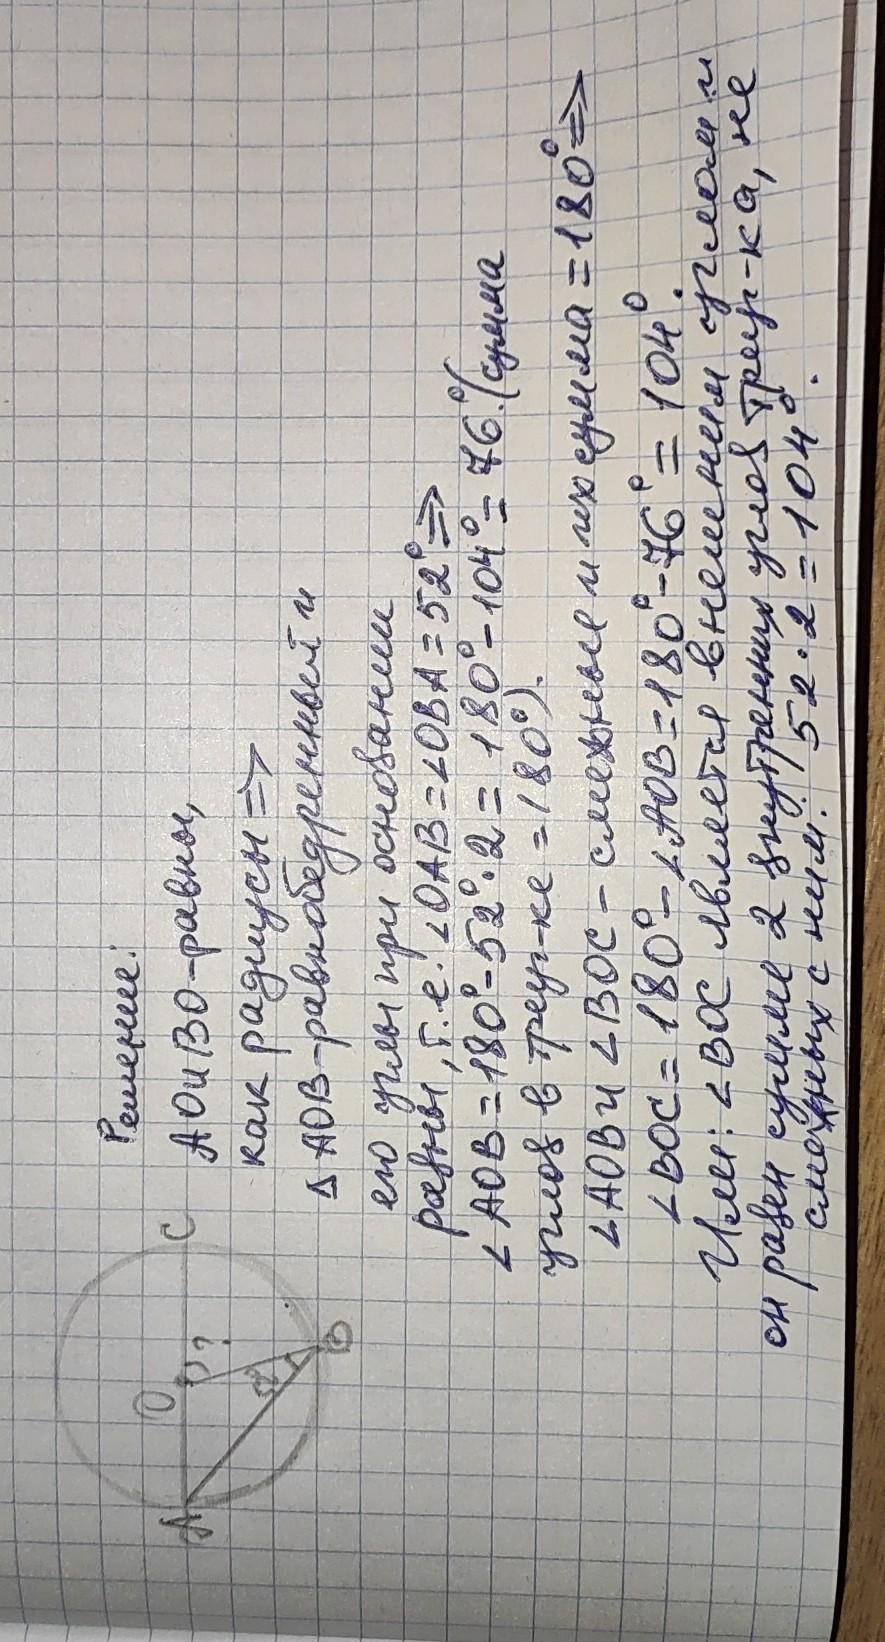 Решение:
AO и BO - равны,
как радиусы =>
Δ AOB - равнобедренный и
его углы при основании
равны, т.е. ∠OAB = ∠OBA = 52° =>
∠AOB = 180° - 52°·2 = 180° - 104° = 76°. (сумма
углов в треуг-ке = 180°).
∠AOB и ∠BOC - смежные и их сумма = 180° =>
∠BOC = 180° - ∠AOB = 180° - 76° = 104°.
Или: ∠BOC является внешним углом и
он равен сумме 2 внутренних углов треуг-ка, не
смежных с ним. 52·2 = 104°.
A
O
C
?
52°
B